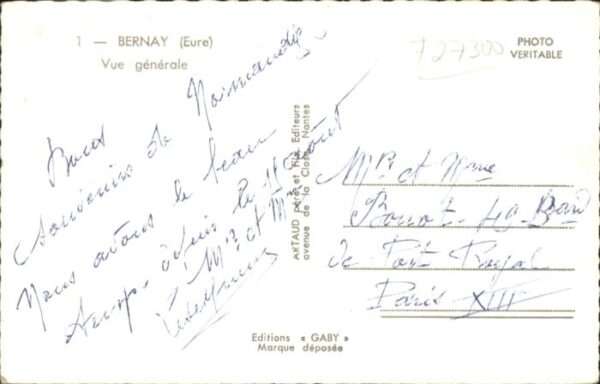 1 — BERNAY (Eure)
Vue générale
727300
PHOTO
VERITABLE
Bons
souvenirs de Normandie
Nous avons le beau
temps depuis le 11 août
Mr et Mme
ARTAUD père et fils Editeurs
avenue de la Close, Nantes
Mr et Mme
49 Bard
de Port Royal
Paris XIII
Editions « GABY »
Marque déposée